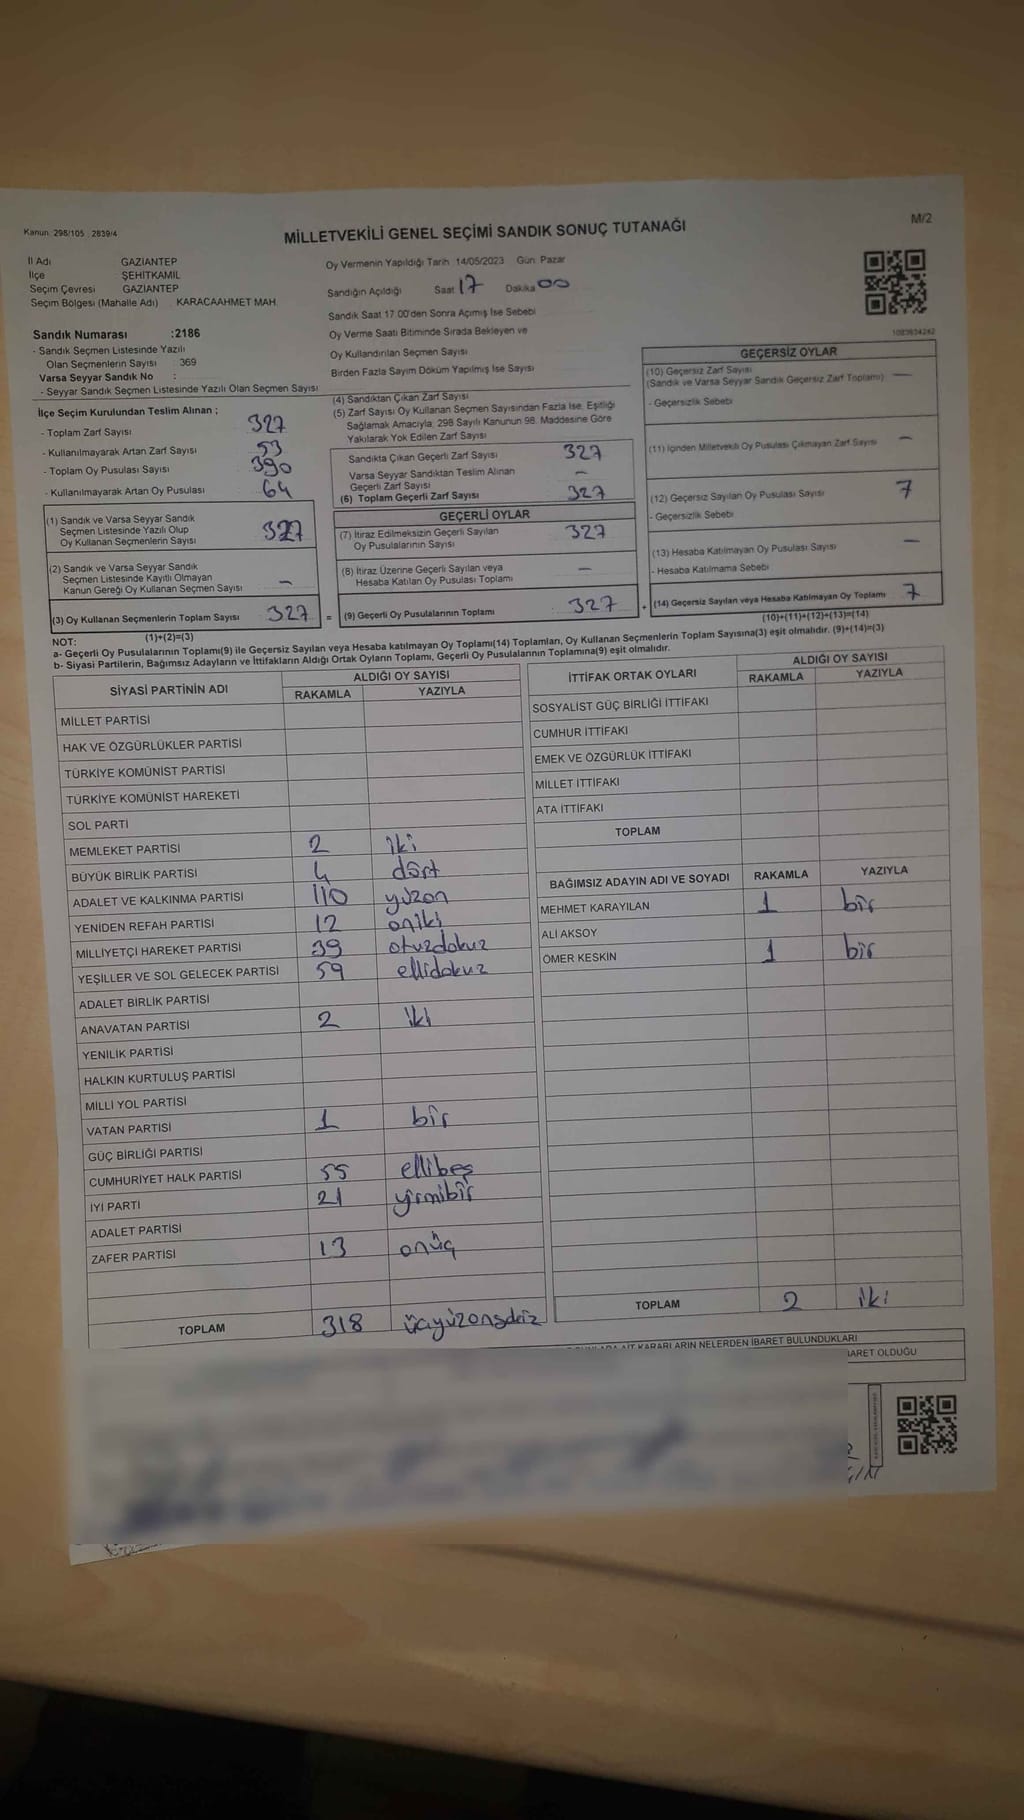 Kanun: 298/105 , 2839/4
MİLLETVEKİLİ GENEL SEÇİMİ SANDIK SONUÇ TUTANAĞI
M/2
İl Adı GAZİANTEP
İlçe ŞEHİTKAMİL
Seçim Çevresi GAZİANTEP
Seçim Bölgesi (Mahalle Adı) KARACAAHMET MAH.
Oy Vermenin Yapıldığı Tarih 14/05/2023 Gün: Pazar
Sandığın Açıldığı Saat 17 Dakika 00
Sandık Saat 17.00'den Sonra Açımış İse Sebebi
Oy Verme Saati Bitiminde Sırada Bekleyen ve
Oy Kullandırılan Seçmen Sayısı
Birden Fazla Sayım Döküm Yapılmış İse Sayısı
1083634242
Sandık Numarası :2186
- Sandık Seçmen Listesinde Yazılı
Olan Seçmenlerin Sayısı : 369
Varsa Seyyar Sandık No :
- Seyyar Sandık Seçmen Listesinde Yazılı Olan Seçmen Sayısı
İlçe Seçim Kurulundan Teslim Alınan ;
- Toplam Zarf Sayısı 327
- Kullanılmayarak Artan Zarf Sayısı 53
- Toplam Oy Pusulası Sayısı 390
- Kullanılmayarak Artan Oy Pusulası 64
(1) Sandık ve Varsa Seyyar Sandık
Seçmen Listesinde Yazılı Olup
Oy Kullanan Seçmenlerin Sayısı 327
(2) Sandık ve Varsa Seyyar Sandık
Seçmen Listesinde Kayıtlı Olmayan
Kanun Gereği Oy Kullanan Seçmen Sayısı –
(3) Oy Kullanan Seçmenlerin Toplam Sayısı 327 =
(1)+(2)=(3)
(4) Sandıktan Çıkan Zarf Sayısı
(5) Zarf Sayısı Oy Kullanan Seçmen Sayısından Fazla İse, Eşitliği
Sağlamak Amacıyla, 298 Sayılı Kanunun 98. Maddesine Göre
Yakılarak Yok Edilen Zarf Sayısı
Sandıkta Çıkan Geçerli Zarf Sayısı 327
Varsa Seyyar Sandıktan Teslim Alınan
Geçerli Zarf Sayısı –
(6) Toplam Geçerli Zarf Sayısı 327
GEÇERLİ OYLAR
(7) İtiraz Edilmeksizin Geçerli Sayılan
Oy Pusulalarının Sayısı 327
(8) İtiraz Üzerine Geçerli Sayılan veya
Hesaba Katılan Oy Pusulası Toplamı –
(9) Geçerli Oy Pusulalarının Toplamı 327 +
GEÇERSİZ OYLAR
(10) Geçersiz Zarf Sayısı
(Sandık ve Varsa Seyyar Sandık Geçersiz Zarf Toplamı) –
- Geçersizlik Sebebi
(11) İçinden Milletvekili Oy Pusulası Çıkmayan Zarf Sayısı –
(12) Geçersiz Sayılan Oy Pusulası Sayısı 7
- Geçersizlik Sebebi
(13) Hesaba Katılmayan Oy Pusulası Sayısı –
- Hesaba Katılmama Sebebi
(14) Geçersiz Sayılan veya Hesaba Katılmayan Oy Toplamı 7
(10)+(11)+(12)+(13)=(14)
NOT:
a- Geçerli Oy Pusulalarının Toplamı(9) ile Geçersiz Sayılan veya Hesaba katılmayan Oy Toplamı(14) Toplamları, Oy Kullanan Seçmenlerin Toplam Sayısına(3) eşit olmalıdır. (9)+(14)=(3)
b- Siyasi Partilerin, Bağımsız Adayların ve İttifakların Aldığı Ortak Oyların Toplamı, Geçerli Oy Pusulalarının Toplamına(9) eşit olmalıdır.
SİYASİ PARTİNİN ADI
ALDIĞI OY SAYISI
RAKAMLA YAZIYLA
MİLLET PARTİSİ
HAK VE ÖZGÜRLÜKLER PARTİSİ
TÜRKİYE KOMÜNİST PARTİSİ
TÜRKİYE KOMÜNİST HAREKETİ
SOL PARTİ
MEMLEKET PARTİSİ 2 iki
BÜYÜK BİRLİK PARTİSİ 4 dört
ADALET VE KALKINMA PARTİSİ 110 yüzon
YENİDEN REFAH PARTİSİ 12 oniki
MİLLİYETÇİ HAREKET PARTİSİ 39 otuzdokuz
YEŞİLLER VE SOL GELECEK PARTİSİ 59 ellidokuz
ADALET BİRLİK PARTİSİ
ANAVATAN PARTİSİ 2 iki
YENİLİK PARTİSİ
HALKIN KURTULUŞ PARTİSİ
MİLLİ YOL PARTİSİ
VATAN PARTİSİ 1 bir
GÜÇ BİRLİĞİ PARTİSİ
CUMHURİYET HALK PARTİSİ 55 ellibeş
İYİ PARTİ 21 yirmibir
ADALET PARTİSİ
ZAFER PARTİSİ 13 onüç
TOPLAM 318
İTTİFAK ORTAK OYLARI
ALDIĞI OY SAYISI
RAKAMLA YAZIYLA
SOSYALİST GÜÇ BİRLİĞİ İTTİFAKI
CUMHUR İTTİFAKI
EMEK VE ÖZGÜRLÜK İTTİFAKI
MİLLET İTTİFAKI
ATA İTTİFAKI
TOPLAM
BAĞIMSIZ ADAYIN ADI VE SOYADI RAKAMLA YAZIYLA
MEHMET KARAYILAN 1 bir
ALİ AKSOY
ÖMER KESKİN 1 bir
TOPLAM 2 iki
KARARLARIN NELERDEN İBARET BULUNDUKLARI
BARET OLDUĞU